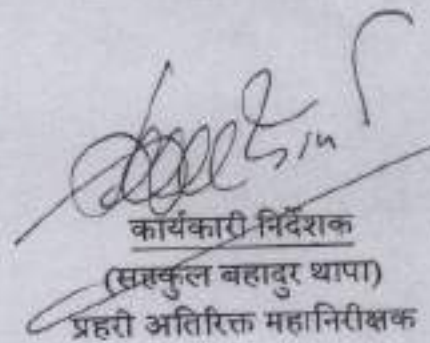 कार्यकारी निर्देशक
(सहकुल बहादुर थापा)
प्रहरी अतिरिक्त महानिरीक्षक